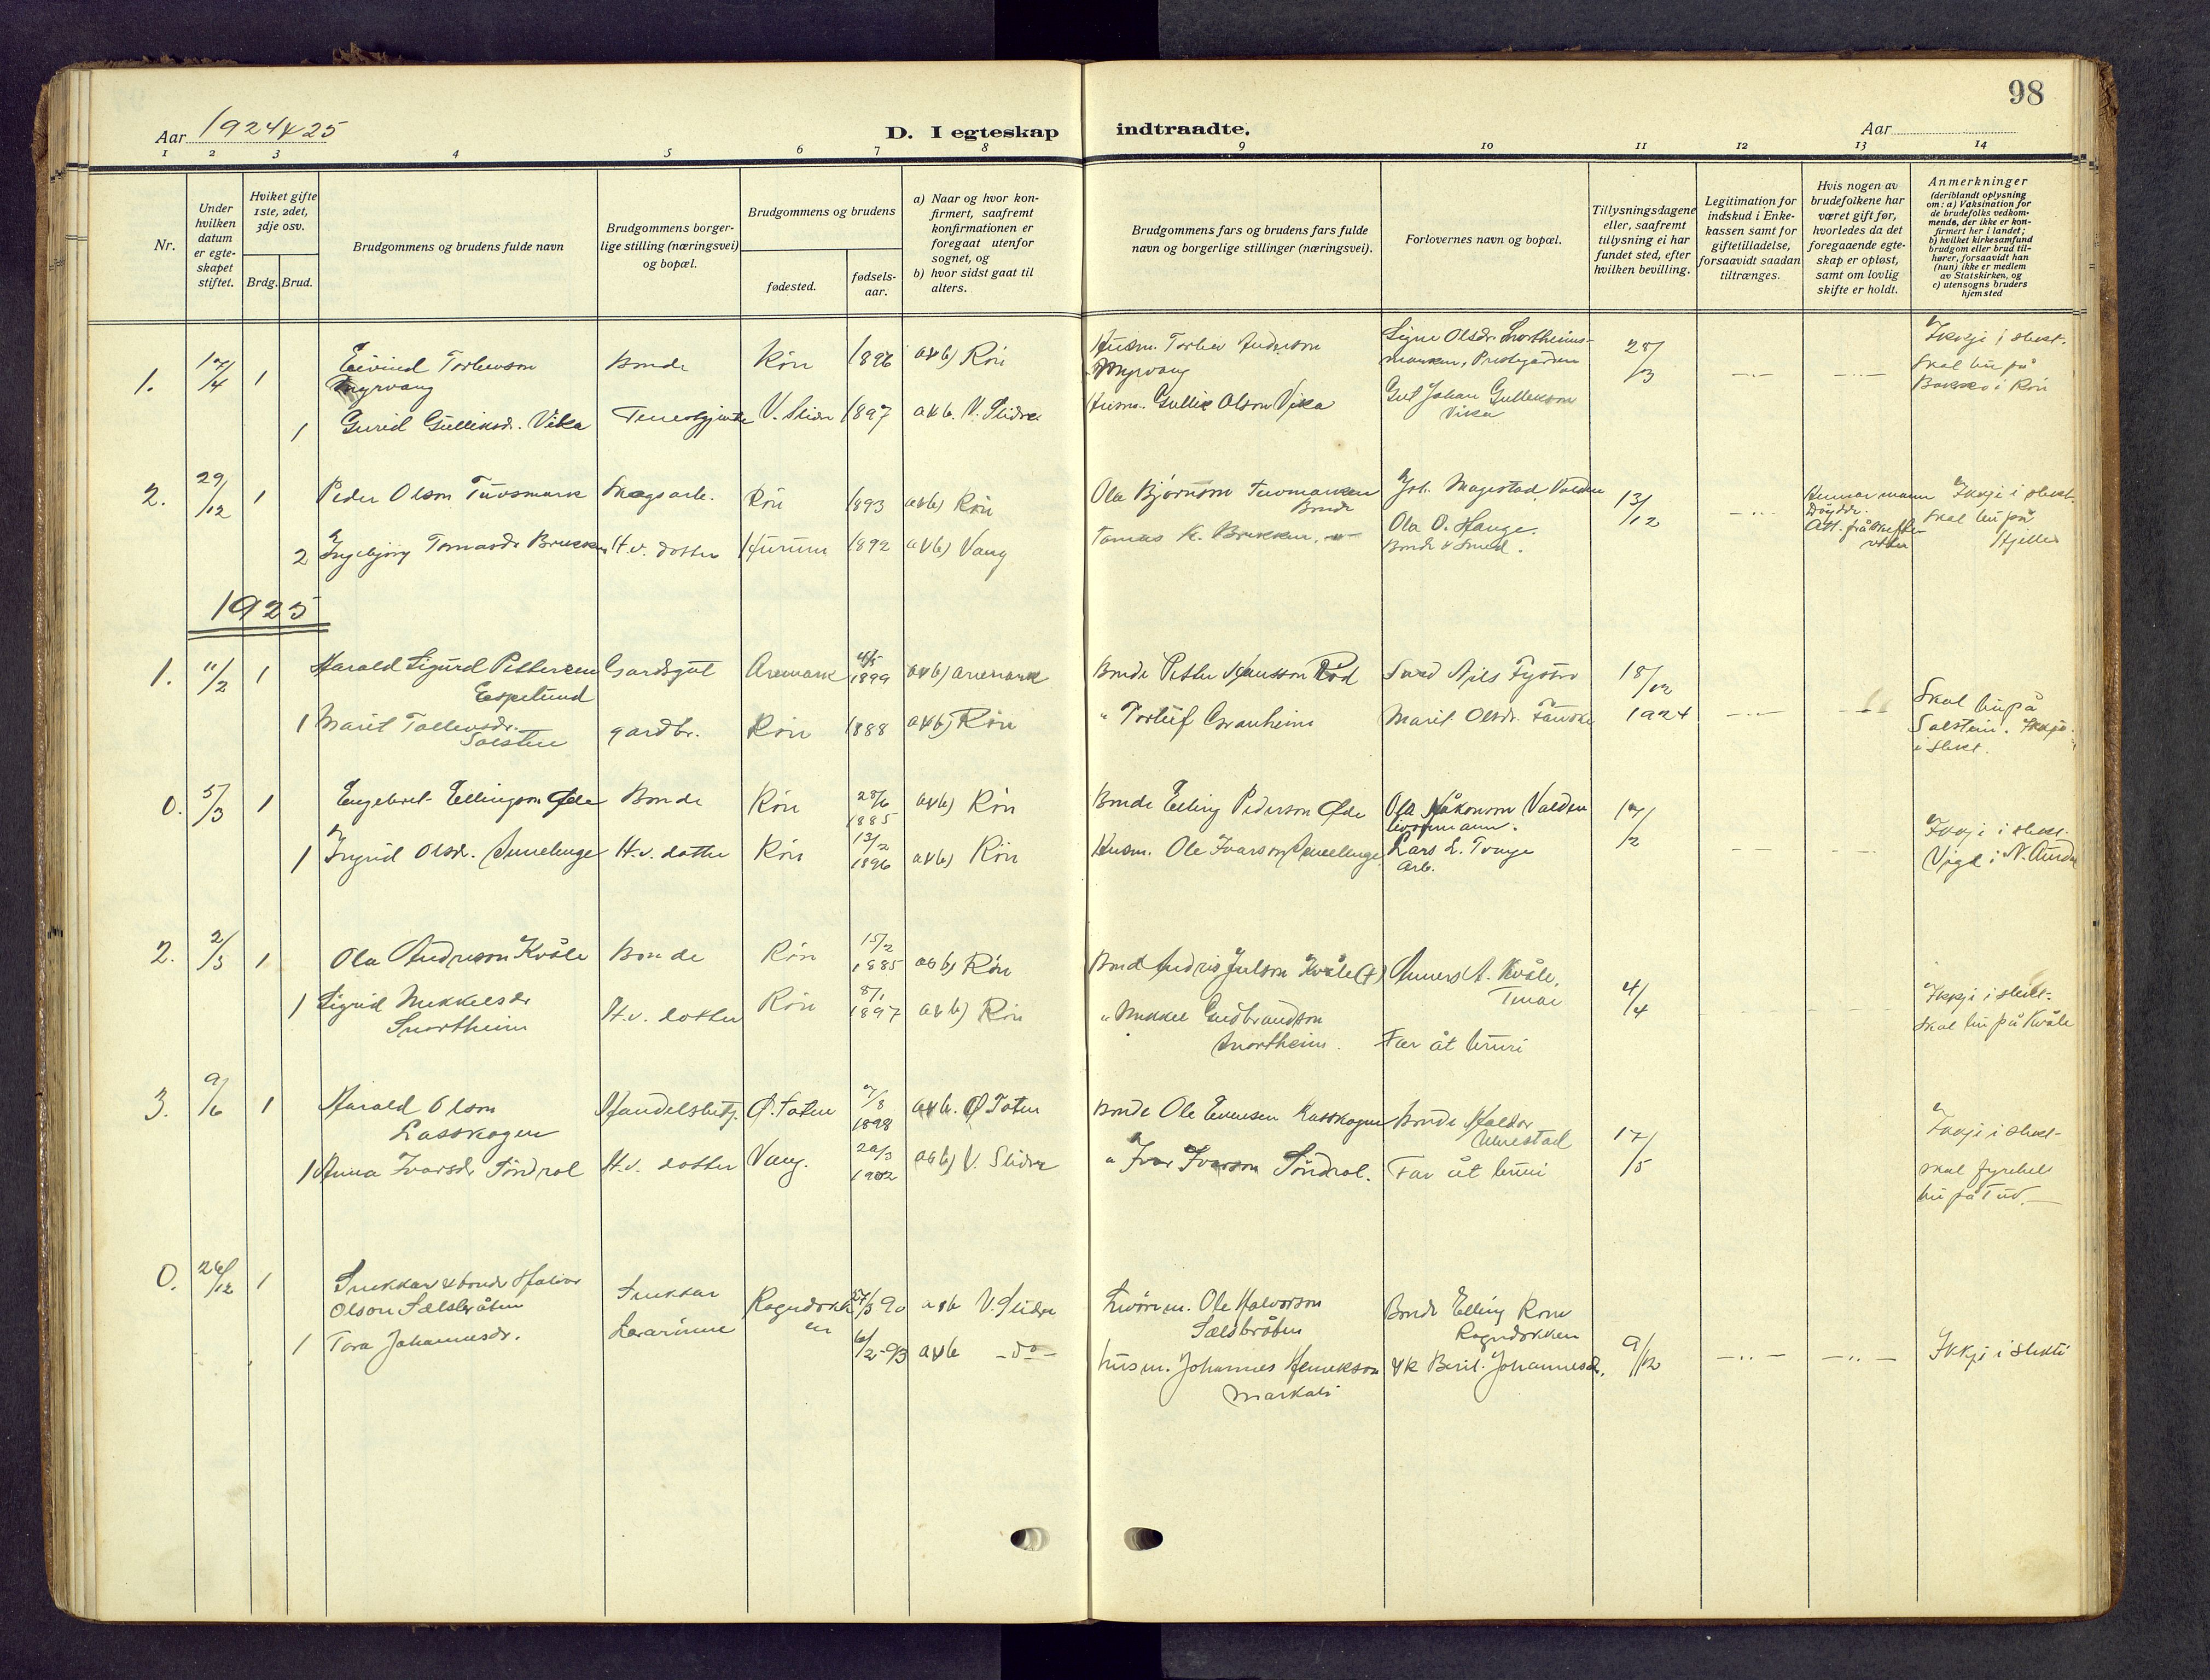 98
Aar 1924 & 25
D. I egteskap indtraadte.
Aar
1 2 3 4 5 6 7 8 9 10 11 12 13 14
Nr.
Under hvilken datum er egte-skapet stiftet.
Hviket gifte 1ste, 2det, 3dje osv.
Brdg. Brud.
Brudgommens og brudens fulde navn
Brudgommens borger-lige stilling (næringsvei) og bopæl.
Brudgommens og brudens
fødested.
fødsels-aar.
a) Naar og hvor kon-firmert, saafremt konfirmationen er foregaat utenfor sognet, og
b) hvor sidst gaat til alters.
Brudgommens fars og brudens fars fulde navn og borgerlige stillinger (næringsvei).
Forlovernes navn og bopæl.
Tillysningsdagene eller, saafremt tillysning ei har fundet sted, efter hvilken bevilling.
Legitimation for indskud i Enke-kassen samt for giftetilladelse, forsaavidt saadan tiltrænges.
Hvis nogen av brudefolkene har været gift før, hvorledes da det foregaaende egte-skap er opløst, samt om lovlig skifte er holdt.
Anmerkninger
(deriblandt oplysning om: a) Vaksination for de brudefolks vedkom-mende, der ikke er kon-firmert her i landet; b) hvilket kirkesamfund brudgom eller brud til-hører, forsaavidt han (hun) ikke er medlem av Statskirken, og c) utensogns bruders hjemsted
1. 17/4 1 Eivind Torleivson Myrvang Bonde Røn 1896 a&b) Røn Husm. Torleiv Anderson Myrvang Signe Olsdr. Snortheims-marken, Prestegarden 25/3 Ikkje i slekt. Skal bu på Bakko i Røn
1 Gurid Gulliksdr. Vika Tenestgjente V. Slidre 1897 a&b. V. Slidre Husm. Gullik Olson Vika Gut Johan Gulleikson Vika
2. 29/12 1 Peder Olson Tuvsmark Skogsarb. Røn 1893 a&b) Røn Ola Bjørnson Tuvmarken Bonde Joh. Magistad, Valdr 13/12 Hennar mann døydde. Ikkje i slekt. Skal bu på Hjelle
2 Ingebjørg Tomasdr Brukken H.v. dotter Hurum 1892 a&b) Vang Tomas K. Brukken Ola O. Hauge. Bonde & Smed.
1925
1. 11/2 1 Harald Sigurd Pettersen Espelund Gardsgut Aremark 4/5 1899 a&b) Aremark Bonde Petter Hansson Rød Smed Nils Fystro 18/12 1924 Skal bu på Solstein. Ikkje i slekt.
1 Marit Tollevsdr. Solstein gardbr. Røn 1888 a&b) Røn " Torleif Granheim Marit Olsdr. Fauske
0. 5/3 1 Engebret Ellingson Øde Bonde Røn 28/6 1885 a&b) Røn Bonde Elling Pederson Øde Ola Håkonson Valden 17/2 Ikkje i slekt. Vigd i N. Aurdal
1 Ingrid Olsdr. H.v. dotter Røn 13/2 1896 a&b) Røn Husm. Ole Ivarson Lars L. Tonge Arb.
2. 2/5 1 Ola Andrisson Kvåle Bonde Røn 15/2 1885 a&b) Røn Bonde Andris Julson Kvåle (+) Anners A. Kvåle, 4/4 Ikkje i slekt. Skal bu på Kvåle
1 Sigrid Mikkelsdr Snortheim H.v. dotter Røn 5/1 1897 a&b) Røn " Mikkel Gudbrandson Snortheim. Far åt bruri
3. 9/6 1 Harald Olson Lasskogen Handelsbetj. Ø. Toten 7/8 1898 a&b. Ø Toten Bonde Ole Evensen Lasskogen Bonde Haldor Ulvestad 17/5 Ikkje i slekt skal fyrebels bu på Tuv.
1 Anna Ivarsdr Søndrol H.v. dotter Vang. 20/3 1902 a&b) V. Slidre " Ivar Ivarson Søndrol. Far åt bruri
0. 26/12 1 Snikkar & bonde Halvor Olson Sælsbråten Snikkar Rogndokken 27/3 90 a&b V. Slidre Ole Halvorson Sælsbråten Bonde Elling Rogndokken 9/12 Ikkje i slekt
1 Tora Johannesdr. Lærarinne 6/2-93 a&b -do- husm. Johannes Henrikson & k Berit Johannesdr.